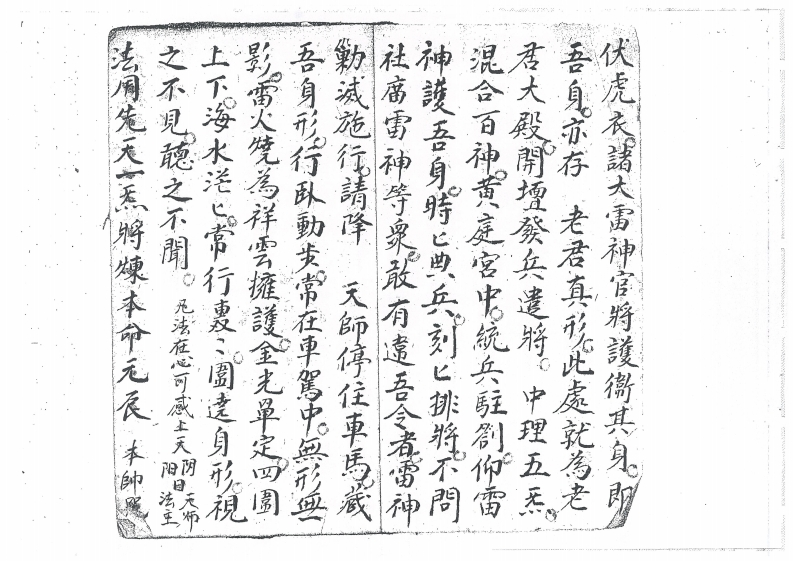 伏虎衣。諸大雷神官將護衛其身。即
吾身。亦存 老君真形。此處就為老
君大殿。開壇發兵遣將。 中理五炁。
混合百神。黃庭宮中。統兵駐劄。仰雷
神護吾身。時匕典兵。刻匕排將。不問
社廟雷神等衆。敢有違吾令者。雷神
勦滅施行。請降 天師停住車馬。藏
吾身形。行臥動步。常在車駕中。無形無
影。雷火燒為祥雲擁護。金光罩定四圍
上下。海水茫匕。常行轟〻。圍遶身形。視
之不見。聽之不聞。 凡法在心可感上天 阴日天師 阳日法主
法用先天一炁將煉本命元辰 本帥